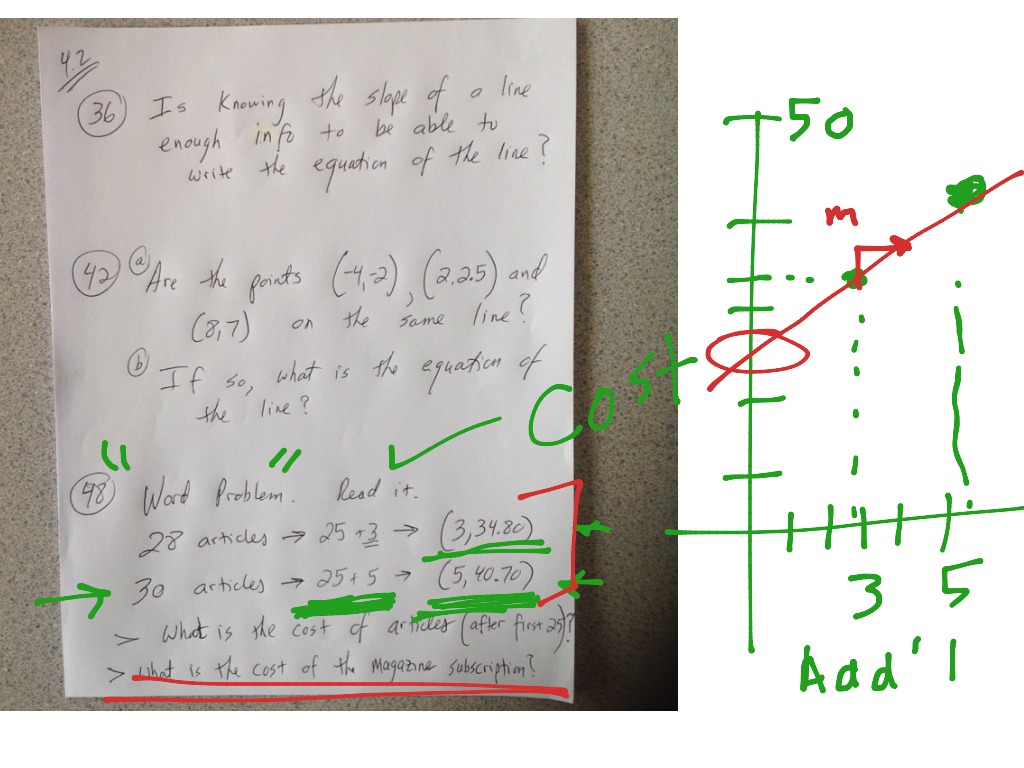 4.2
36 Is knowing the slope of a line
enough info to be able to
write the equation of the line?
42 a Are the points (-4,-2), (2,2.5) and
(8,7) on the same line?
b If so, what is the equation of
the line?
48 " Word Problem. " Read it.
28 articles → 25 + 3 → (3,34.80)
30 articles → 25 + 5 → (5,40.70)
> What is the cost of articles (after first 25)?
> What is the cost of the magazine subscription?
Cost
50
m
3 5
Add'l